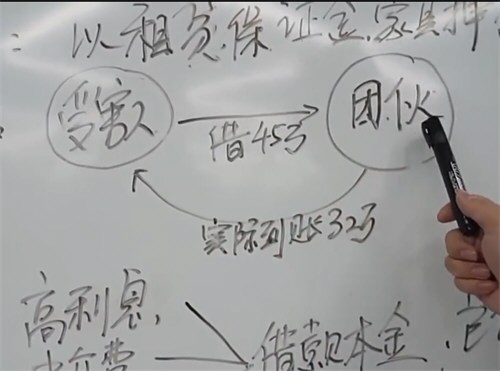 : 以租赁.保证金.家具押
受害人 团伙
借45万
实际到账32万
高利息,
中介费 借 本金.